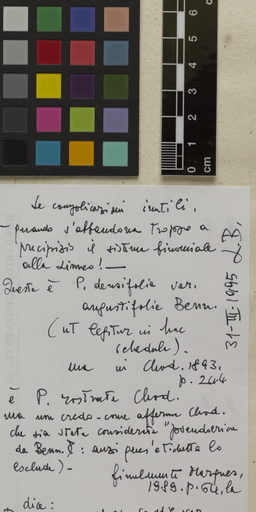 6
5
4
3
2
1
0
cm
Le complicazioni inutili,
quando s'abbandona troppo a
precipizio il sistema binomiale
alla Linneo! —
Questa è P. densifolia var.
angustifolia Benn.
(ut legitur in hac
schedula).
ma in Chod. 1893,
p. 264
è P. rostrata Chod.
ma non credo - come afferma Chod.
che sia stata considerata "pseudoerica
da Benn.": anzi quest'etichetta lo
esclude) -
finalmente Marques,
1989. p.
dice:
31-III-1995